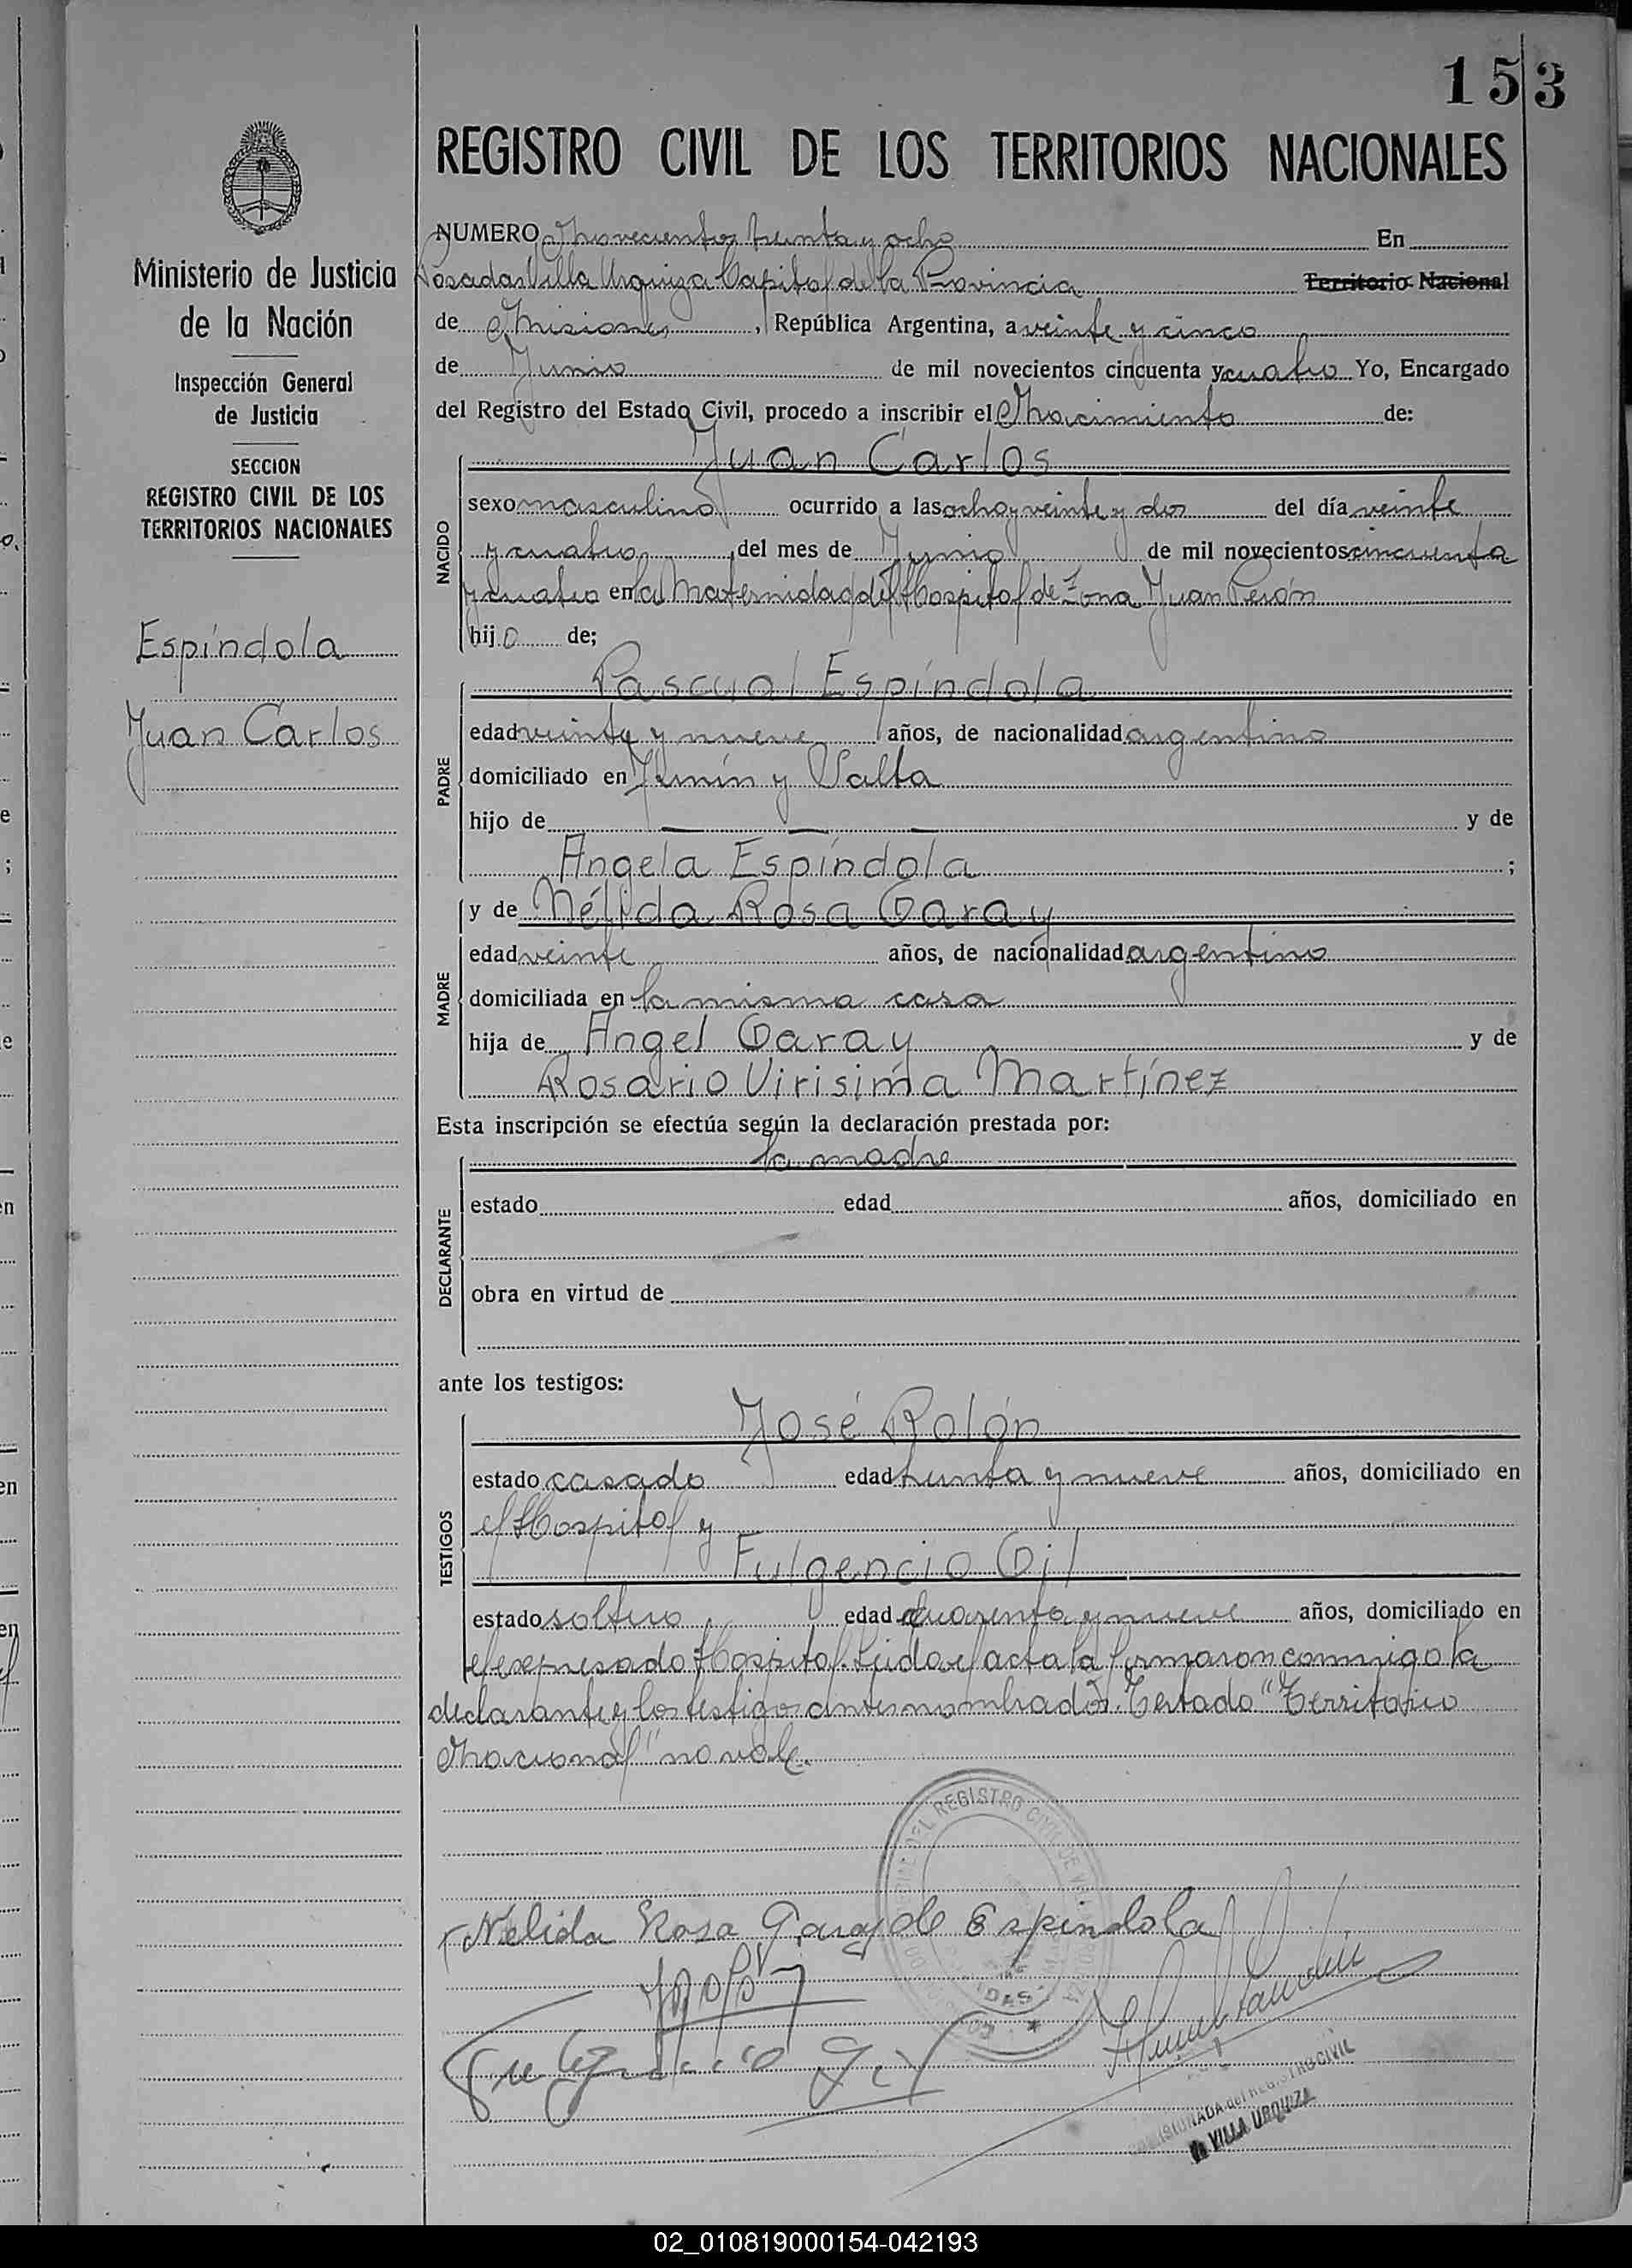 153
REGISTRO CIVIL DE LOS TERRITORIOS NACIONALES
Ministerio de Justicia
de la Nación
Inspección General
de Justicia
SECCION
REGISTRO CIVIL DE LOS
TERRITORIOS NACIONALES
Espíndola
Juan Carlos
NUMERO Novecientos treinta y ocho En
Posadas Villa Urquiza Capital de la Provincia Territorio Nacional
de Misiones, República Argentina, a veinte y cinco
de Junio de mil novecientos cincuenta y cuatro Yo, Encargado
del Registro del Estado Civil, procedo a inscribir el Nacimiento de:
Juan Carlos
NACIDO
sexo masculino ocurrido a las ocho y veinte y dos del día veinte
y cuatro, del mes de Junio de mil novecientos cincuenta
y cuatro en la Maternidad del Hospital de Zona Juan Perón
hijo de;
Pascual Espíndola
PADRE
edad veinte y nueve años, de nacionalidad argentino
domiciliado en Junín y Salta
hijo de — — — y de
Angela Espíndola ;
y de Nélida Rosa Garay
MADRE
edad veinte años, de nacionalidad argentino
domiciliada en la misma casa
hija de Angel Garay y de
Rosario Virisima Martínez
Esta inscripción se efectúa según la declaración prestada por:
la madre
DECLARANTE
estado edad años, domiciliado en
obra en virtud de
ante los testigos:
José Rolón
TESTIGOS
estado casado edad treinta y nueve años, domiciliado en
el Hospital y
Fulgencio Gil
estado soltero edad cuarenta y nueve años, domiciliado en
el expresado Hospital. Leida el acta la firmaron conmigo la
declarante y los testigos antes nombrados. Testado "Territorio
Nacional" no vale.
DEL REGISTRO CIVIL DE
Nélida Rosa Garay de Espindola
JRolón
Fulgencio Gil
COMISIONADA del REGISTRO CIVIL
VILLA URQUIZA
02_010819000154-042193